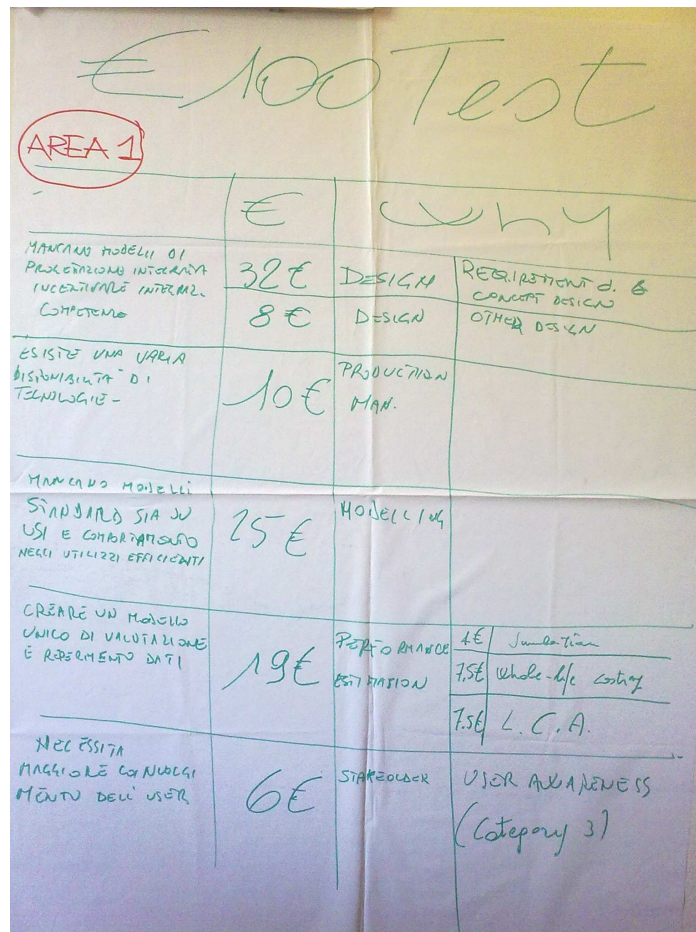 € 100 Test
AREA 1
€ Why
MANCANO MODELLI DI
PROGETTAZIONE INTEGRATA
INCENTIVARE INTERAZ.
COMPETENZE
32 € DESIGN REQUIREMENT d. &
CONCEPT DESIGN
8 € DESIGN OTHER DESIGN
ESISTE UNA VARIA
DISPONIBILITÀ DI
TECNOLOGIE -
10 € PRODUCTION
MAN.
MANCANO MODELLI
STANDARD SIA SU
USI E COMPORTAMENTO
NEGLI UTILIZZI EFFICIENTI
25 € MODELLING
CREARE UN MODELLO
UNICO DI VALUTAZIONE
E REPERIMENTO DATI
19 € PERFORMANCE
ESTIMATION
4€ Simulation
7,5€ Whole-life costing
7.5€ L.C.A.
NECESSITA
MAGGIORE COINVOLGI
MENTO DELL'USER
6€ STAKEOLDER USER AWARENESS
(Category 3)